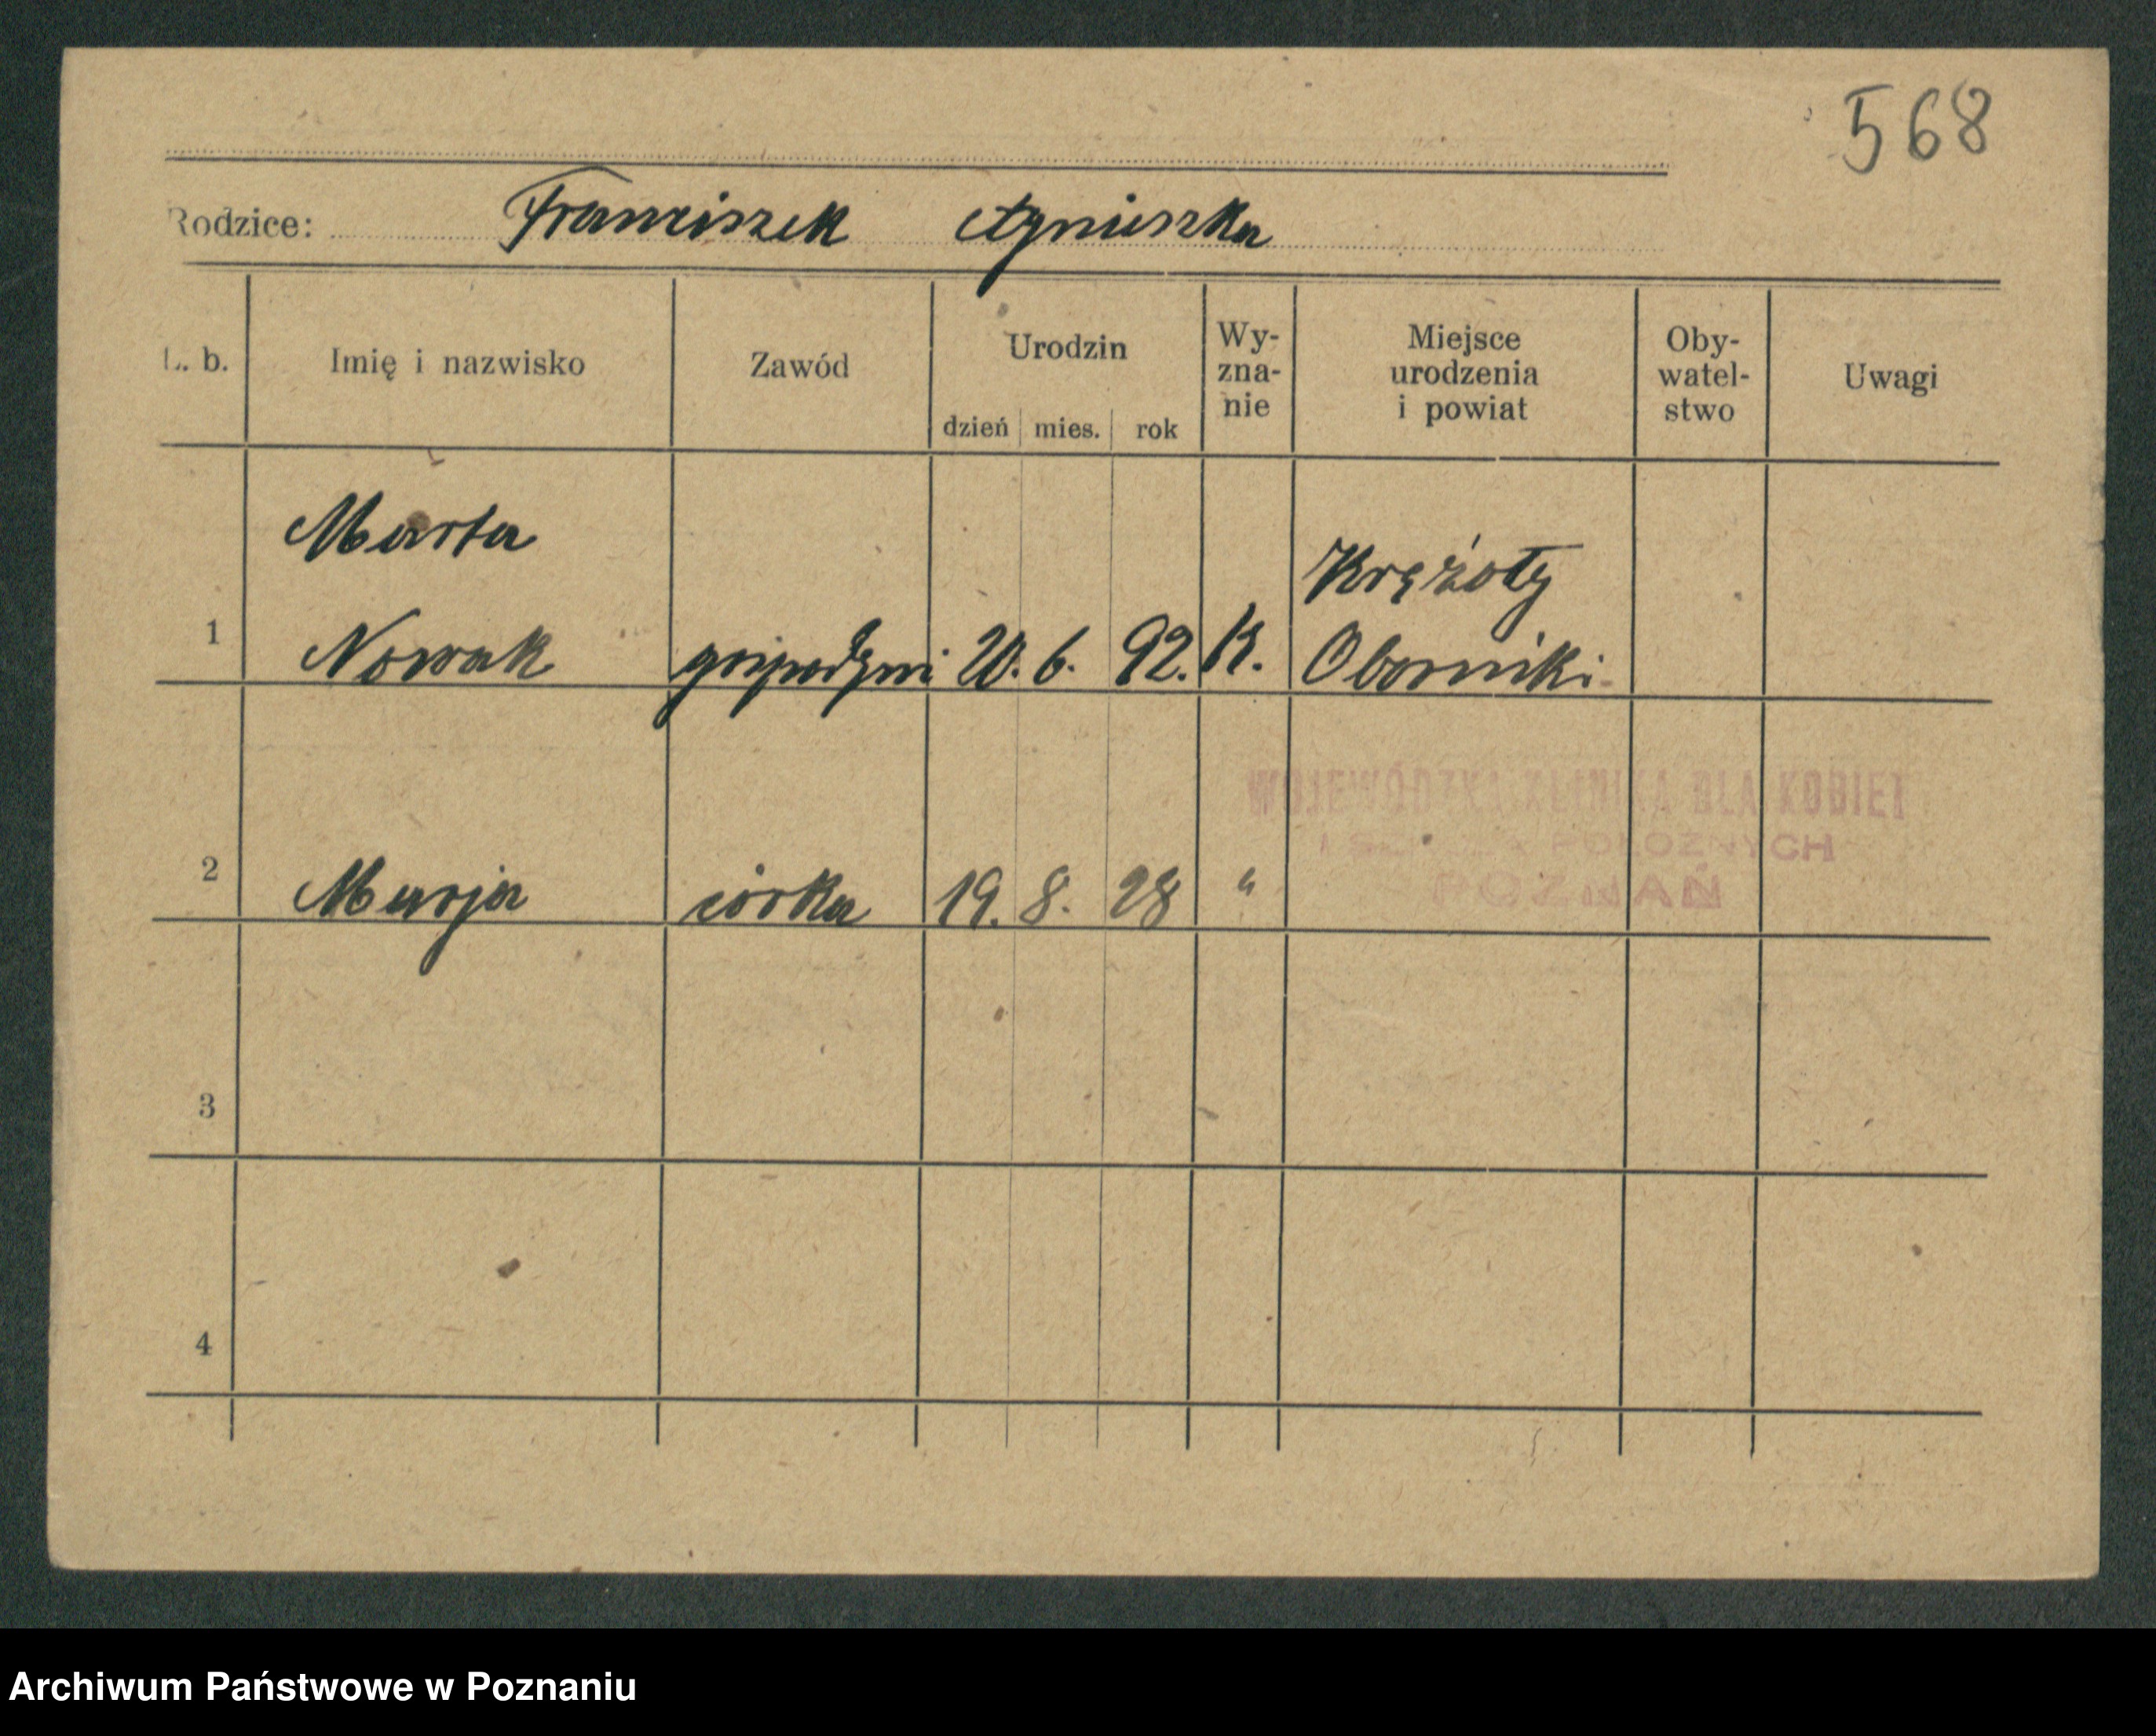 568
Rodzice: Franciszek Agnieszka
L. b. Imię i nazwisko Zawód Urodzin dzień mies. rok Wy-zna-nie Miejsce urodzenia i powiat Oby-watel-stwo Uwagi
Marta Krężoły
1 Nowak gospodyni 20. 6. 92. K. Oborniki
WOJEWÓDZKA KLINIKA DLA KOBIET
I POŁOŻNYCH
POZNAŃ
2 Marja córka 19. 8. 28 "
3
4
Archiwum Państwowe w Poznaniu